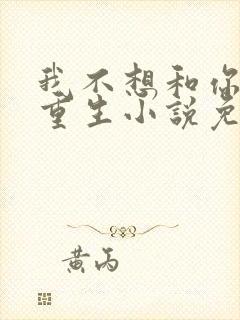 我不想和你
重生小說免
黃丙